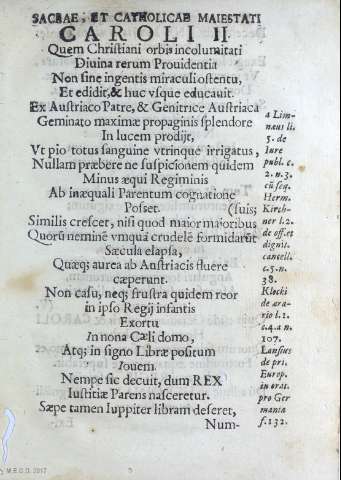 SACRAE, ET CATHOLICAE MAIESTATI
CAROLI II
Quem Christiani orbis incolumitati
Diuina rerum Prouidentia
Non sine ingentis miraculi ostentu,
Et edidit, & huc vsque educauit.
Ex Austriaco Patre, & Genitrice Austriaca
Geminato maximæ propaginis splendore
In lucem prodijt,
Vt pio totus sanguine vtrinque irrigatus,
Nullam præbere ne suspicionem quidem
Minus æqui Regiminis
Ab inæquali Parentum cognatione
Posset. (suis;
Similis crescet, nisi quod maior maioribus
Quorū neminē vmquā crudelē formidarūt
Sæcula elapsa,
Quæq; aurea ab Austriacis fluere
cæperunt.
Non casu, neq; frustra quidem reor
in ipso Regij infantis
Exortu
In nona Cæli domo,
Atq; in signo Libræ positum
Iouem.
Nempe sic decuit, dum REX
Iustitiæ Parens nasceretur.
Sæpe tamen Iuppiter libram deseret,
Num-
a Lim-
næus li.
5. de
Iure
publ. c.
2. n. 3.
cū seq.
Herm.
Kirch-
ner l. 2.
de off. et
dignit.
cancell.
c. 5. n.
38.
Klocki
de æra-
rio l. 2.
c. 4. a n.
107.
Lansius
de pri.
Europ.
in orat.
pro Ger
mania
f. 132.
M.E.C.D. 2017